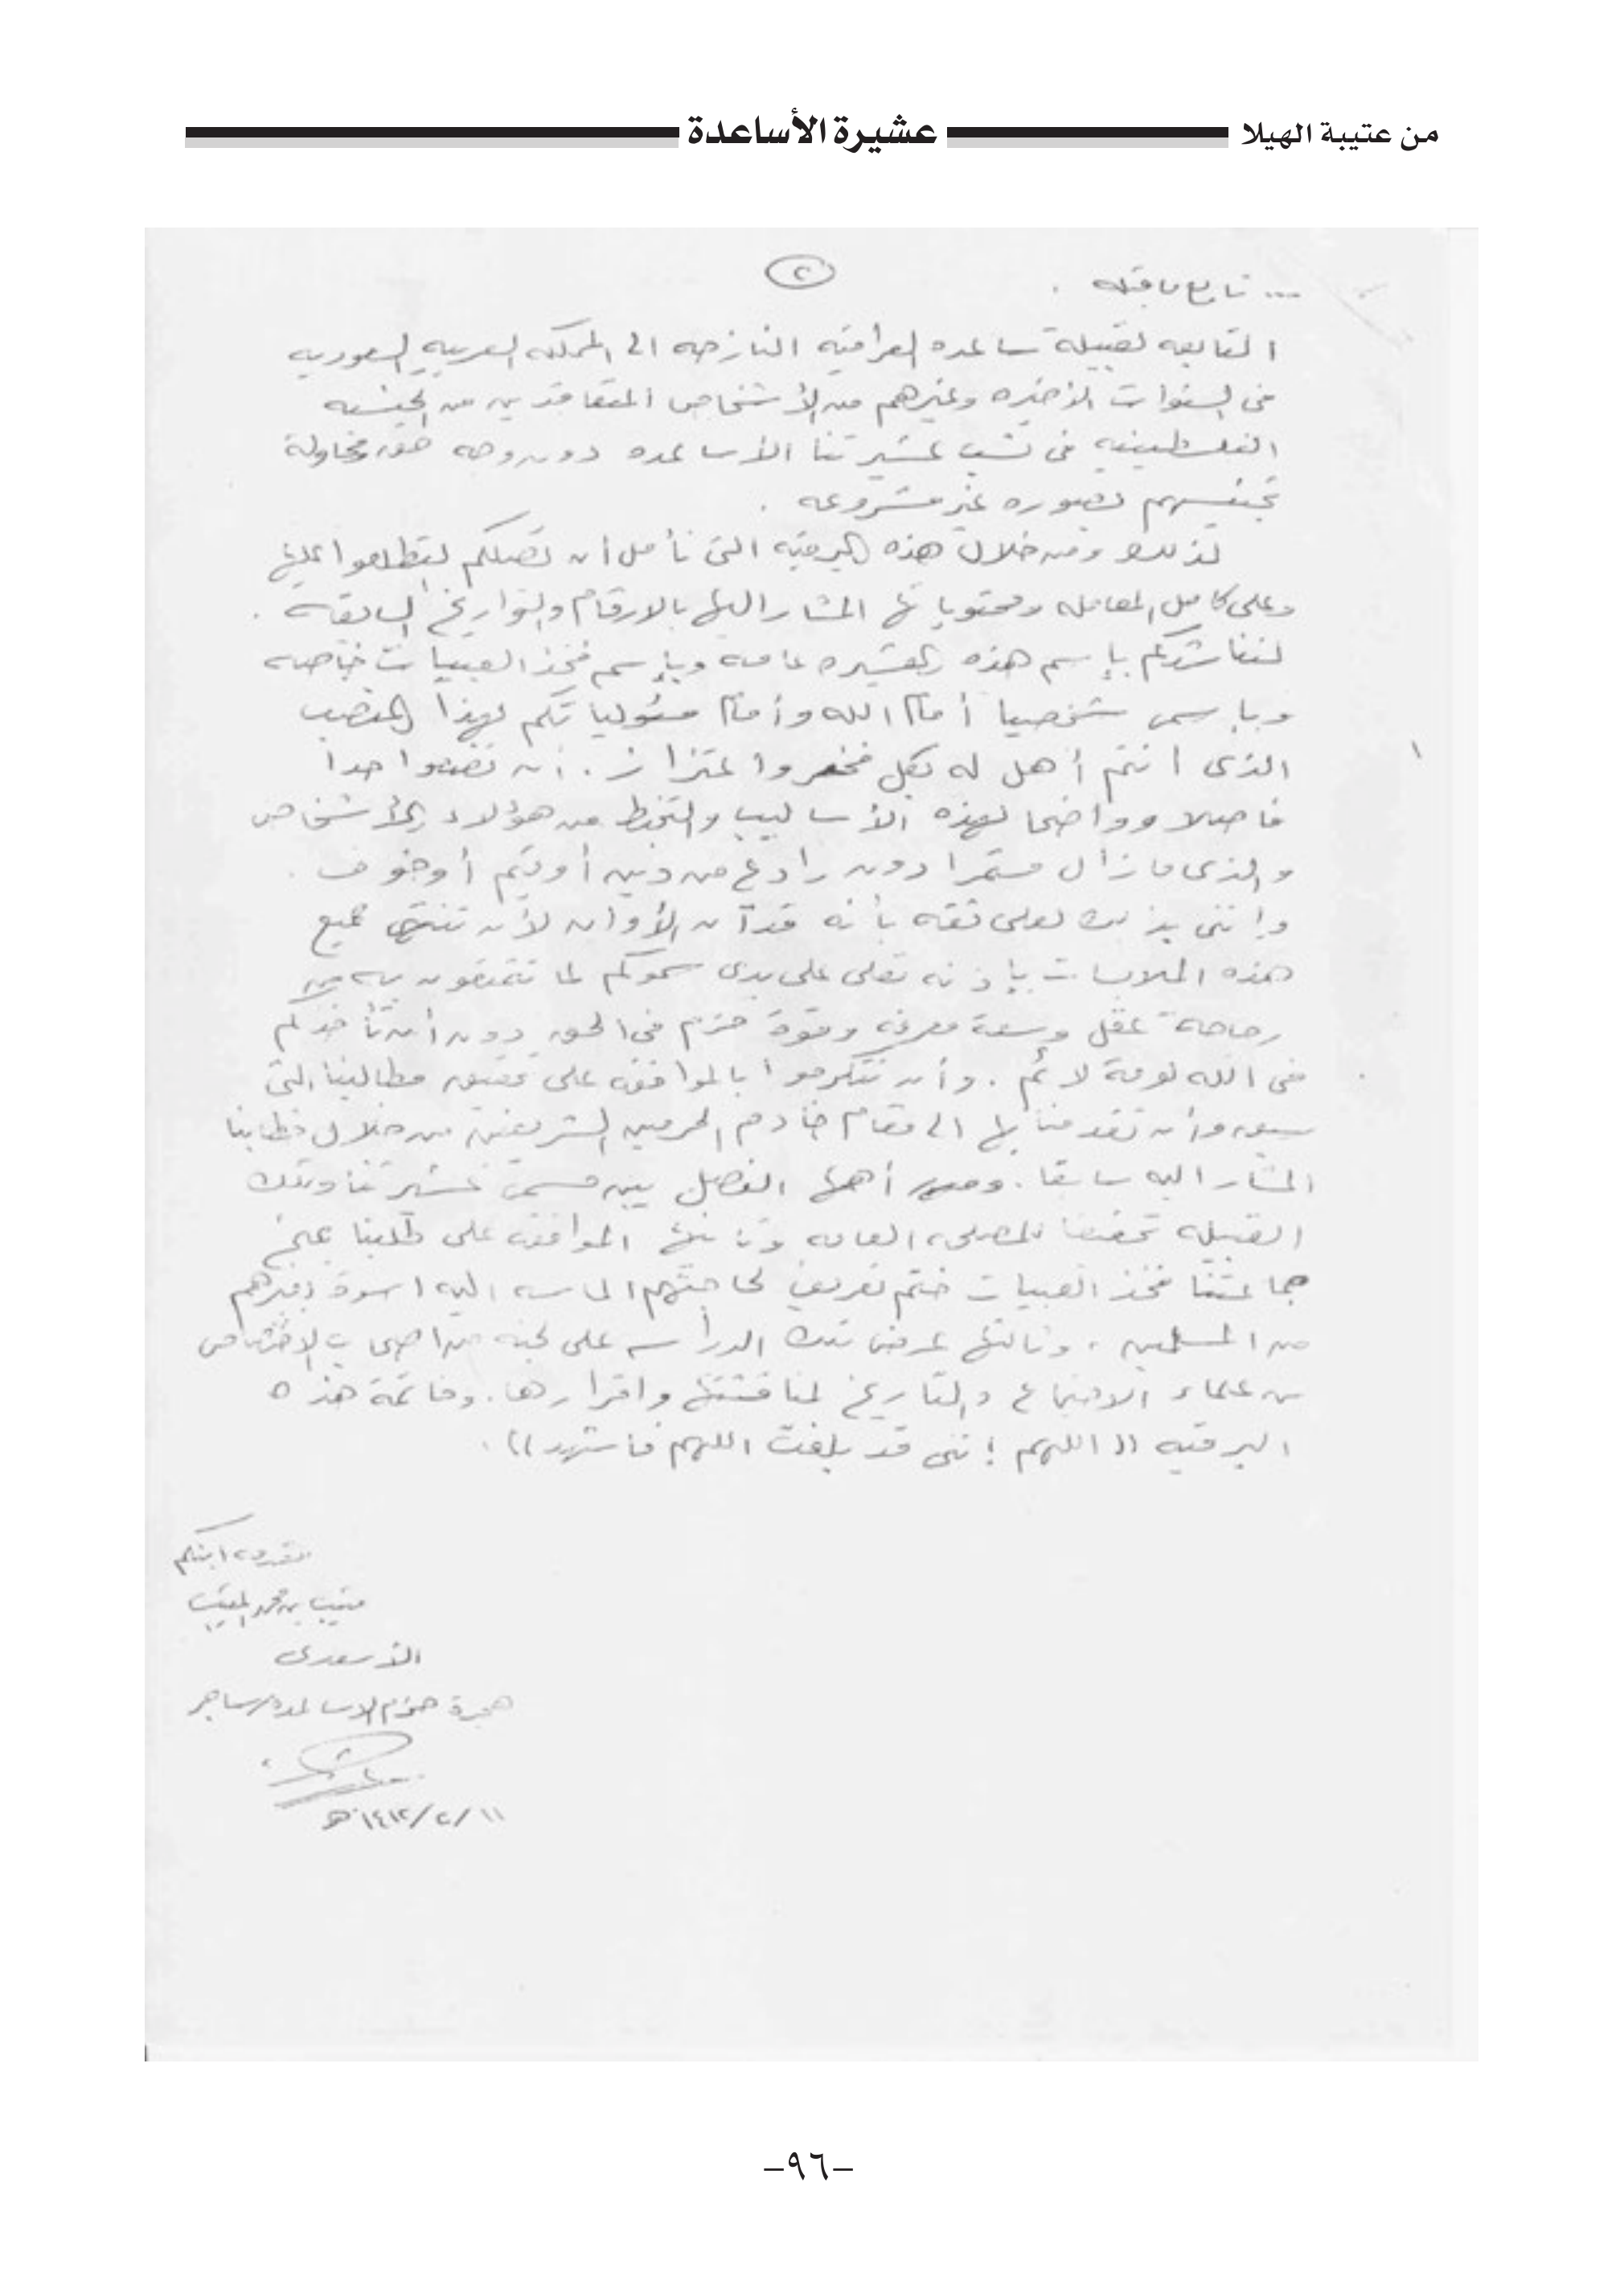 من عتيبة الهيلا
عشيرة الأساعدة
٢
... تابع ماقبله .
التابعه لقبيلة ساعده العراقيه النازحه الى المملكه العربيه السعوديه
فى السنوات الأخيره وغيرهم من الأشخاص المتعاقدين من الجنسيه
الفلسطينيه فى نسب عشيرتنا الأساعده دون وجه حق ومحاولة
تجنيسهم بصوره غير مشروعه .
لذلك ومن خلال هذه البرقيه التى نأمل أن تصلكم لتطلعوا عليها
وعلى كامل المعامله ومحتوياتها المشار اليها بالارقام والتواريخ السابقة .
لنناشدكم بإسم هذه العشيره عامه وبإسم فخذ العبيات خاصه
وبإسمى شخصيا أمام الله وأمام مسئولياتكم لهذا المنصب
الذى انتم أهل له بكل فخر واعتزاز . أن تضعوا حدا
فاصلا وواضحا لهذه الأساليب والتخبط من هؤلاء الأشخاص
والذى مازال مستمرا دون رادع من دين أوقيم أوخوف .
وإننى بذلك لعلى ثقه بأنه قدآن الأوان لأن تنتهى جميع
هذه الملابسات بإذنه تعلى على يدى سموكم لما تتمتعون به من
رجاحة عقل وسعة معرفه وقوة حزم فى الحق دون أن تأخذكم
فى الله لومة لائم . وأن تتكرموا بالموافقه على تحقيق مطالبنا التى
سبق وأن تقدمنا بها الى مقام خادم الحرمين الشريفين من خلال خطابنا
المشار اليه سابقا . ومن أهمها الفصل بين مسمى عشيرتنا وتلك
القبيله تحقيقا للمصلحه العامه وثانيها الموافقه على طلبنا بمنح
جماعتنا فخذ العبيات ختم تعريف لحاجتهم الماسه اليه اسوة بغيرهم
من المسلمين ، وثالثها عرض تلك الدراسه على لجنه من اصحاب الاختصاص
من علماء الاجتماع والتاريخ لمناقشتها واقرارها . وخاتمة هذه
البرقيه (( اللهم إننى قد بلغت اللهم فاشهد )) .
مقدمه ابنكم
متيب بن محمد
الأسعدى
هجرة حزم الاساعده بساجر
١٤١٢/٢/١١هـ
–٩٦–